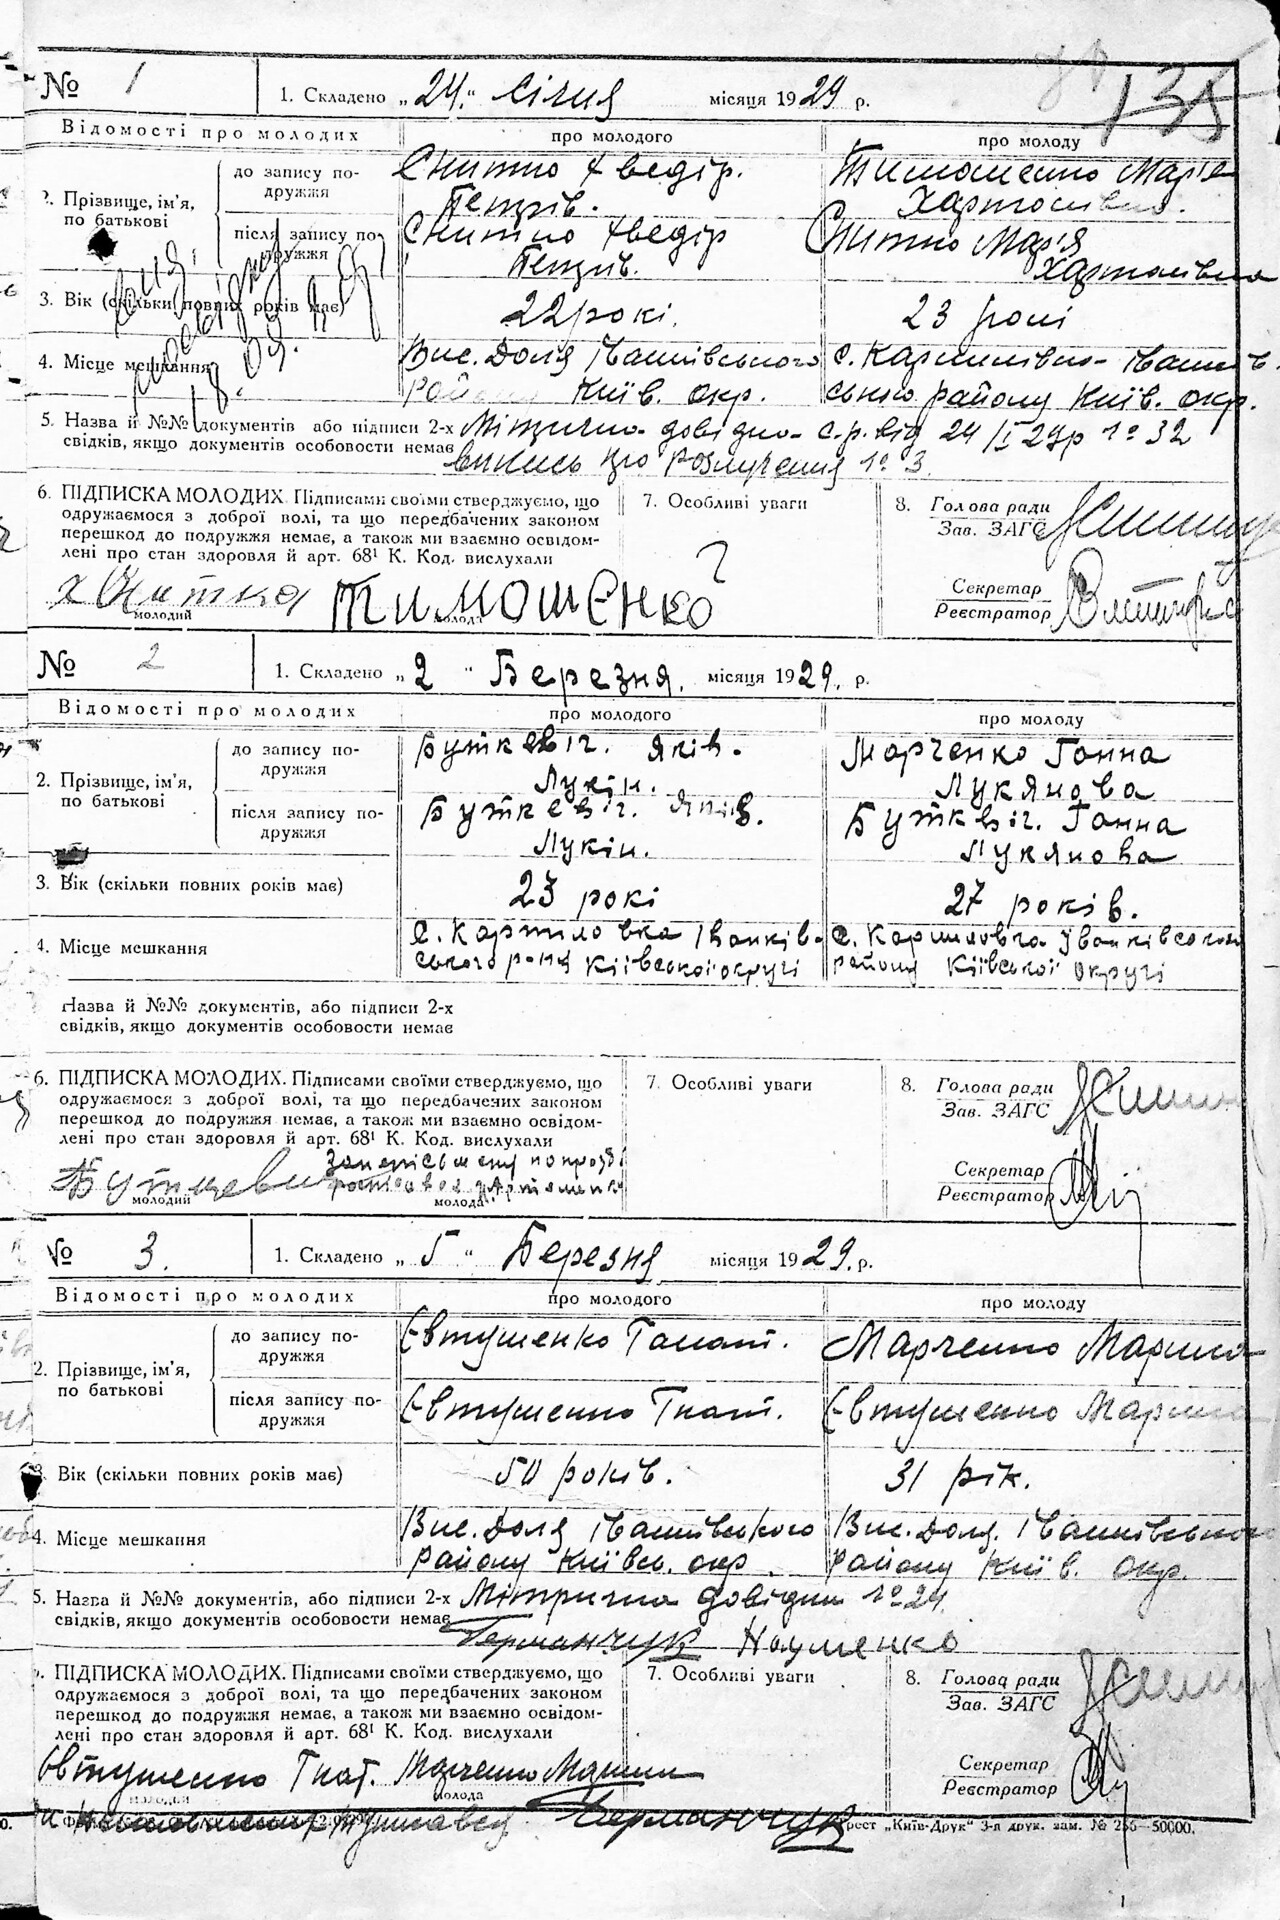 135
№ 1 1. Складено „24.“ Січня місяця 1929 р.
Відомості про молодих про молодого про молоду
2. Прізвище, ім'я, по батькові
до запису подружжя
Снитко Хведір. Петрів.
Тимошенко Марія
після запису подружжя
Снитко Хведір Петрів.
Снитко Марія
3. Вік (скільки повних років має) 22 рокі. 23 рокі
4. Місце мешкання
Вис. Доля Іванківського с. Кармилівка Іванків-
району Київ. окр. ського району Київ. окр.
5. Назва й №№ документів або підписи 2-х Мітрична довідка с.р. від 24/I 29р № 32
свідків, якщо документів особовости немає випись про розлучення № 3.
6. ПІДПИСКА МОЛОДИХ. Підписами своїми стверджуємо, що 7. Особливі уваги 8. Голова ради
одружаємося з доброї волі, та що передбачених законом Зав. ЗАГС
перешкод до подружжя немає, а також ми взаємно освідом-
лені про стан здоровля й арт. 68¹ К. Код. вислухали Секретар
Реєстратор
х Снитко Тимошенко
молодий молода
№ 2 1. Складено „2“ Березня. місяця 1929. р.
Відомості про молодих про молодого про молоду
2. Прізвище, ім'я, по батькові
до запису подружжя
Буткевіч. Яків. Марченко Ганна
Лукін. Лукянова
після запису подружжя
Буткевіч. Яків. Буткевіч. Ганна
Лукін. Лукянова
3. Вік (скільки повних років має) 23 рокі 27 років.
4. Місце мешкання
с. Кармиловка Іванків- с. Кармиловка Іванківського
ського рону Кіівськоі округі району Кіівської округі
Назва й №№ документів, або підписи 2-х
свідків, якщо документів особовости немає
6. ПІДПИСКА МОЛОДИХ. Підписами своїми стверджуємо, що 7. Особливі уваги 8. Голова ради
одружаємося з доброї волі, та що передбачених законом Зав. ЗАГС
перешкод до подружжя немає, а також ми взаємно освідом-
лені про стан здоровля й арт. 68¹ К. Код. вислухали Секретар
Реєстратор
Буткеви
молодий молода
№ 3. 1. Складено „5“ Березня місяця 1929. р.
Відомості про молодих про молодого про молоду
2. Прізвище, ім'я, по батькові
до запису подружжя
Євтушенко Гнат. Марченко Марина
після запису подружжя
Євтушенко Гнат. Євтушенко Марина
3. Вік (скільки повних років має) 50 років. 31 рік.
4. Місце мешкання
Вис. Доля Іванківського Вис. Доля. Іванківського
району Київсь. окр. району Київ. окр.
5. Назва й №№ документів, або підписи 2-х Мітрична довідка № 24
свідків, якщо документів особовости немає Германчук Науменко
ПІДПИСКА МОЛОДИХ. Підписами своїми стверджуємо, що 7. Особливі уваги 8. Голова ради
одружаємося з доброї волі, та що передбачених законом Зав. ЗАГС
перешкод до подружжя немає, а також ми взаємно освідом-
лені про стан здоровля й арт. 68¹ К. Код. вислухали Секретар
Реєстратор
Євтушенко Гнат. Марченко Марина
молодий молода
Германчук
Трест „Київ-Друк“ 3-я друк. зам. № 256—50000.